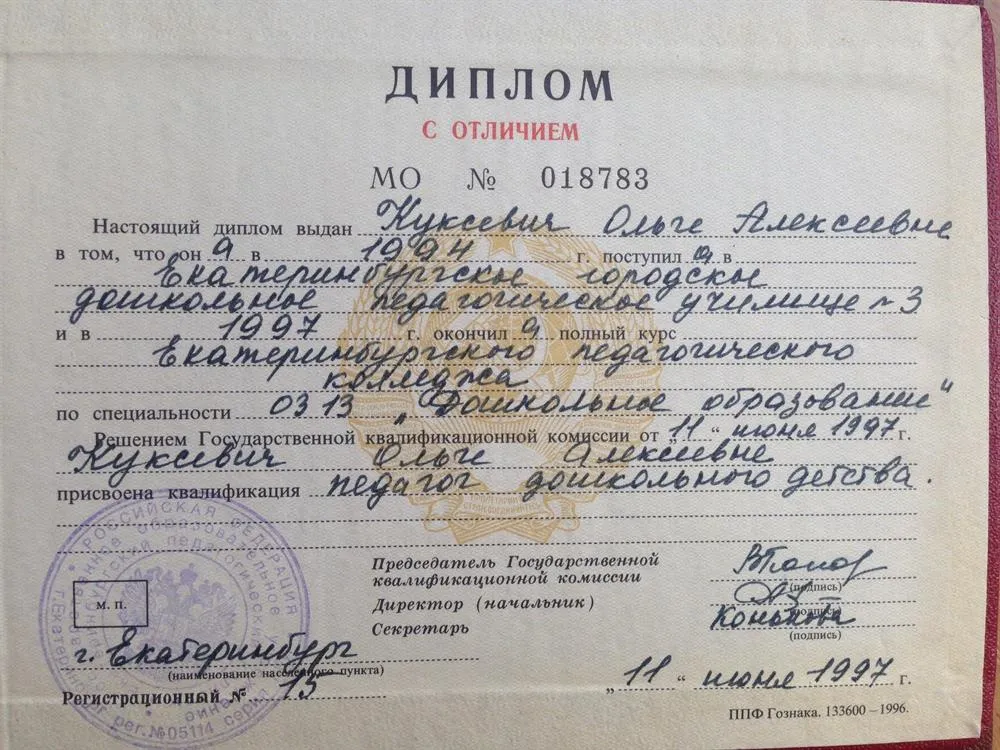 ДИПЛОМ
С ОТЛИЧИЕМ
МО № 018783
Настоящий диплом выдан Куксевич Ольге Алексеевне
в том, что он а в 1994 г. поступил а в
Екатеринбургское городское
дошкольное педагогическое училище №3
и в 1997 г. окончил а полный курс
Екатеринбургского педагогического
колледжа
по специальности 0313 „Дошкольное образование"
Решением Государственной квалификационной комиссии от „11" июня 1997 г.
Куксевич Ольге Алексеевне
присвоена квалификация педагог дошкольного детства.
Председатель Государственной
квалификационной комиссии
(подпись)
Директор (начальник)
(подпись)
Секретарь Конькова
(подпись)
м. п.
г. Екатеринбург
(наименование населенного пункта)
„11" июня 1997 г.
Регистрационный № 15
ППФ Гознака. 133600 – 1996.
РОССИЙСКАЯ ФЕДЕРАЦИЯ
рег.№05114